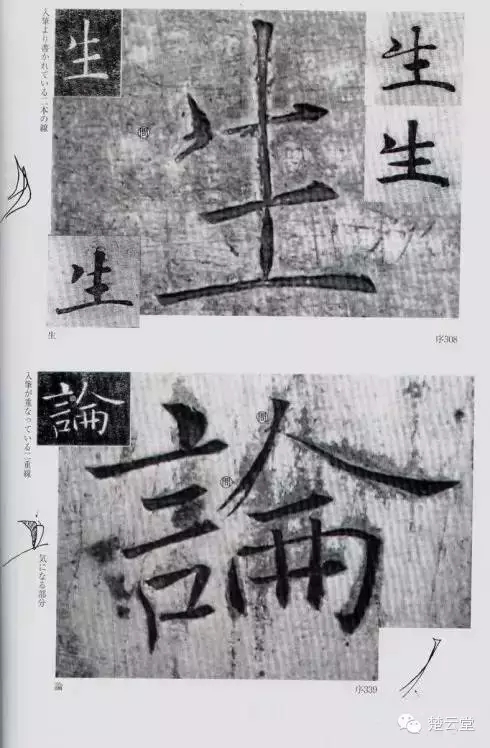 入筆より書かれている二本の線
生
生
生
生
生
間
生
序308
入筆が重なっている二重線
論
論
間
間
気になる部分
論
序339
楚云堂